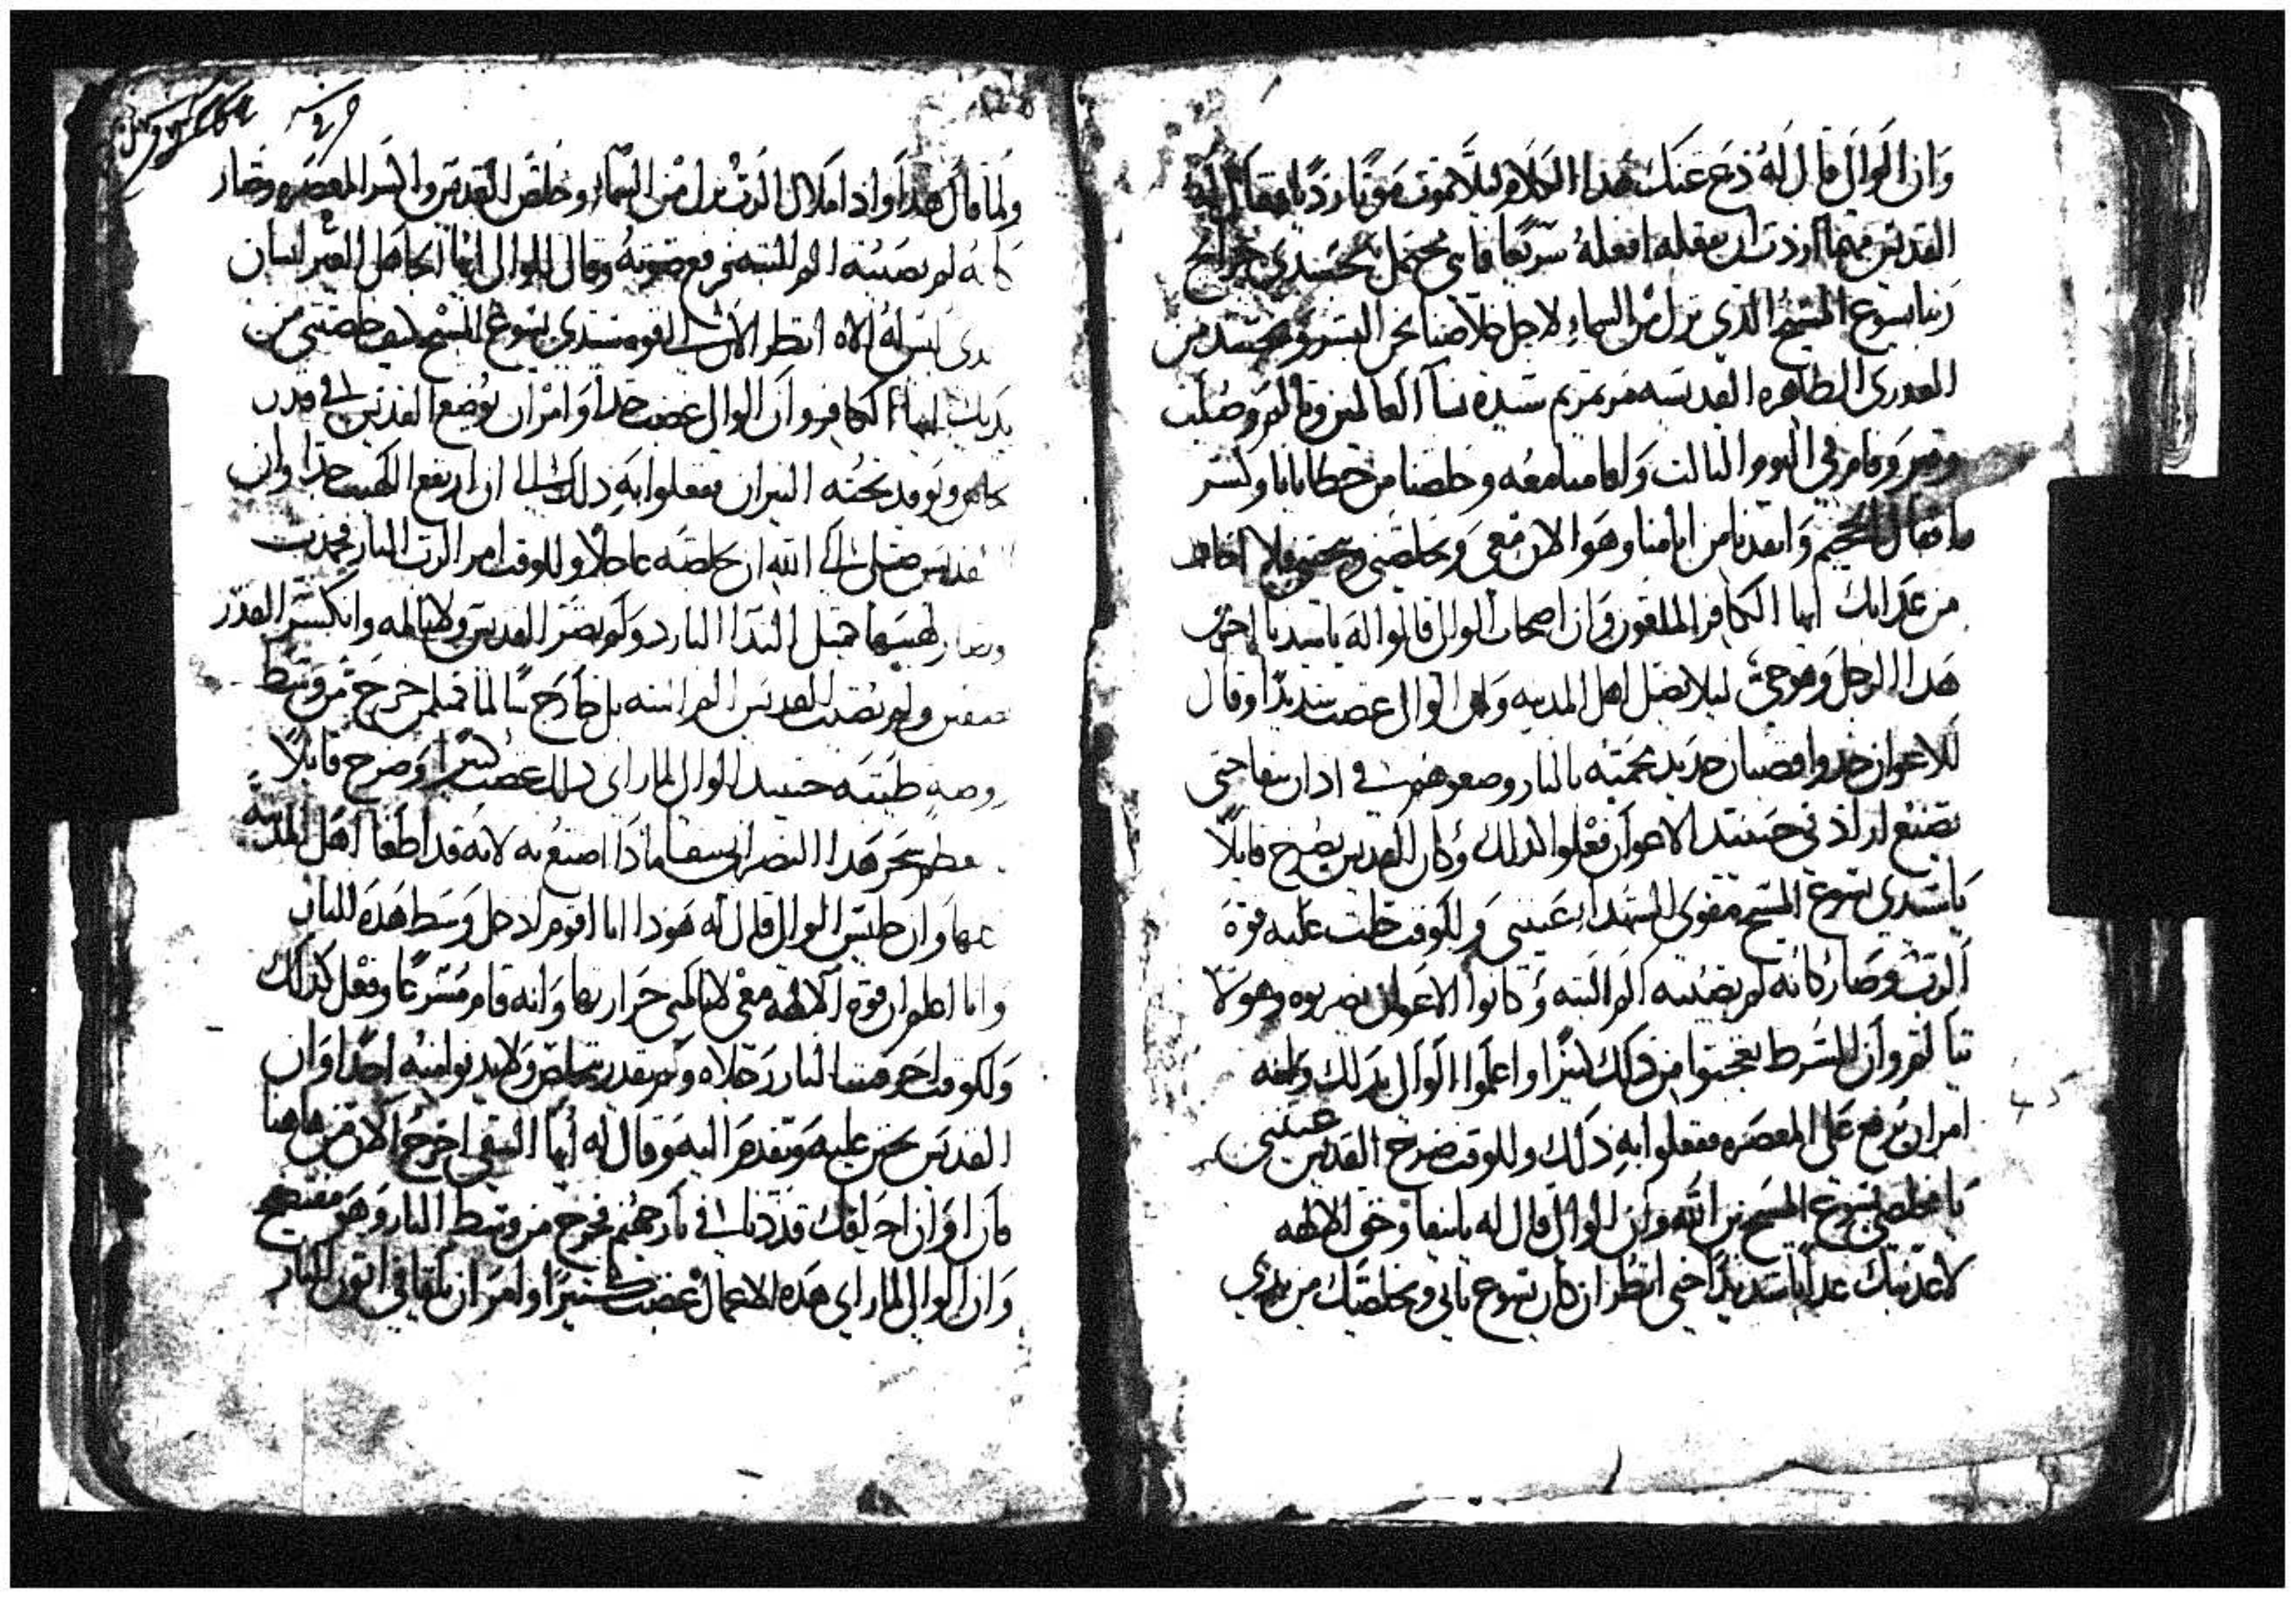 وان الوالى قال له دع عنك هذا الكلام ليلا تموت موتا رديا فقال له
القديس مهما اردت ان تفعله افعله سريعا فانى محتمل بجسدى جراح
ربنا يسوع المسيح الذي نزل من السماء لاجل خلاصنا نحن البشر وتجسد من
العدرى الطاهره القديسه مرتمريم سيدة نسا العالمين وتالم وصلب
وقبر وقام في اليوم الثالث واقامنا معه وخلصنا من خطايانا وكسر
الجحيم وانقدنا من وهو الان معى ويخلصنى فلا اخاف
من عدابك ايها الكافر الملعون وان اصحاب الوالى قالوا له ياسيدنا
هدا الرجل وهو حى ليلا يضل اهل المدينه وان الوالى غضب شديدا وقال
للاعوان خدوا قضبان حديد محميه بالنار وضعوهم في ادان بيفا حتى
تصنع ارادتى حينيد الاعوان فعلوا كدلك وكان القديس يصرخ قايلا
ياسيدى يسوع المسيح مقوى الشهداء عيننى وللوقت حلت عليه قوة
الرب وصار كانه لم يصيبه الم البته وكانوا الاعوان يضربوه وهو لا
يتالم وان الشرط تعجبوا من دلك كثيرا واعلموا الوالى بدلك وانه
امر ان يرفع على المعصره ففعلوا به دلك وللوقت صرخ القديس عيننى
يا مخلصى يسوع المسيح بن الله وان الوالى قال له يابيفا وحق الالهه
لاعدبنك عدابا شديدا حتى انظر ان كان يسوع ياتى ويخلصك من يدي
ولما قال هدا واذا ملاك الرب نزل من السماء وخلص القديس وانكسر المعصره وصار
كانه لم يصيبه الم البته فرفع صوته وقال للوالى ايها الجاهل الغير انسان
الدى ليس له الاه انظر الان الى قوة سيدي يسوع المسيح كيف خلصنى من
يديك ايها الكافر وان الوالى غضب جدا وامر ان يوضع القديس في قدر
نحاس ويوقد تحته النيران ففعلوا به دلك الى ان ارتفع اللهيب جدا وان
القديس صلى الى الله ان يخلصه عاجلا وللوقت امر الرب النار فخمدت
وصار لهيبها مثل الندا البارد ولم يضر القديس ولا يالمه وانكسر القدر
نصفين ولم يصيب القديس الم البته بل خارج سالما كمثل من خرج من وسط
روضه طيبه حينيد الوالى لما راى دلك غضب كثيرا وصرخ قايلا
عظيم سحر هدا النصرانى بيفا مادا اصنع به لانه قد اطغا اهل المدينه
جميعها وان جليس الوالى قال له هودا انا اقوم ادخل وسط هده النار
وانا اعلم ان قوة الالهه معى لا يالمنى حرارتها وانه قام مسرعا وفعل كدلك
وللوقت احرقت النار رجلاه ولم يقدر يخلص ولا يدنوا منه احدا وان
القديس تحنن عليه وتقدم اليه وقال له ايها الشقى اخرج الان من هاهنا
في نار جهنم فخرج من وسط النار وهو مفتضح
وان الوالى لما راى هده الاعمال غضب كثيرا وامر ان يلقا في اتون النار